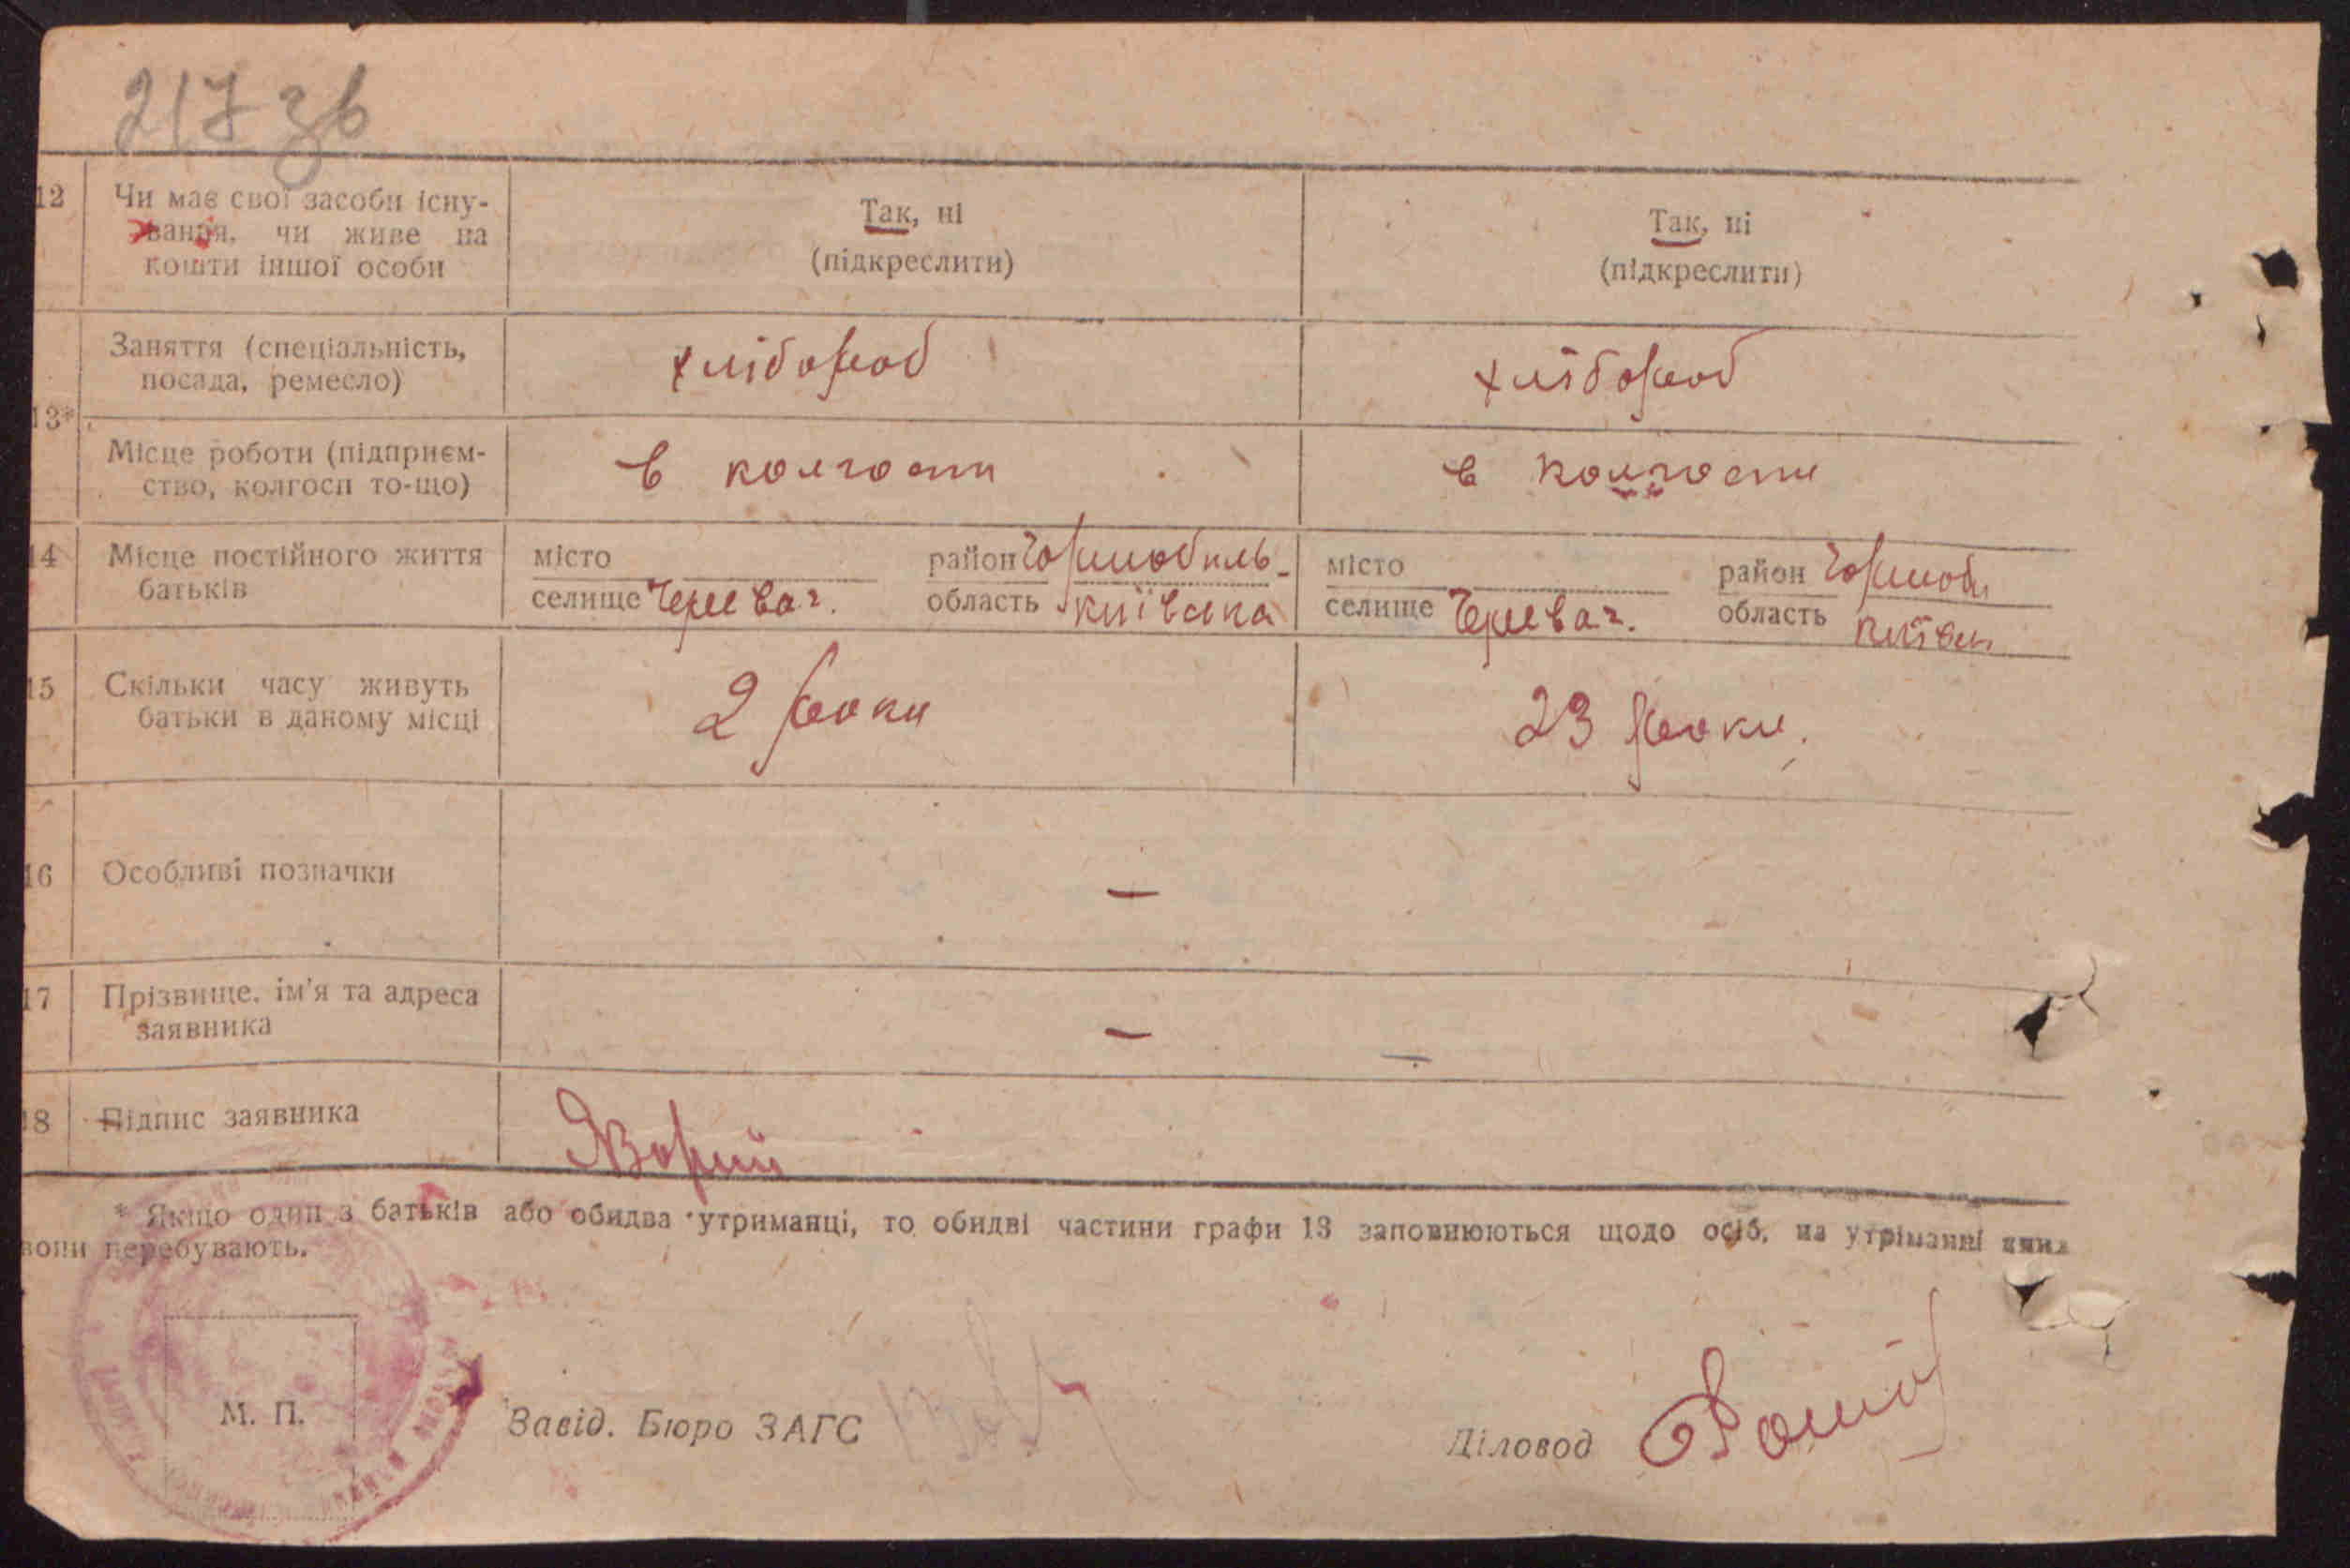 217 зв
12 Чи має свої засоби існу- Так, ні Так, ні
вання, чи живе на (підкреслити) (підкреслити)
кошти іншої особи
Заняття (спеціальність, хлібороб хлібороб
посада, ремесло)
13*
Місце роботи (підприєм- в колгоспи в колгоспи
ство, колгосп то-що)
14 Місце постійного життя місто район Чорнобиль- місто район Чорноб.
батьків селище Черевач. область київська селище Черевач. область київськ
15 Скільки часу живуть 2 роки 23 роки.
батьки в даному місці
16 Особливі позначки —
17 Прізвище, ім'я та адреса —
заявника
18 Підпис заявника
* Якщо один з батьків або обидва утриманці, то обидві частини графи 13 заповнюються щодо осіб, на утріманні яких
вони перебувають.
М. П. Завід. Бюро ЗАГС Діловод